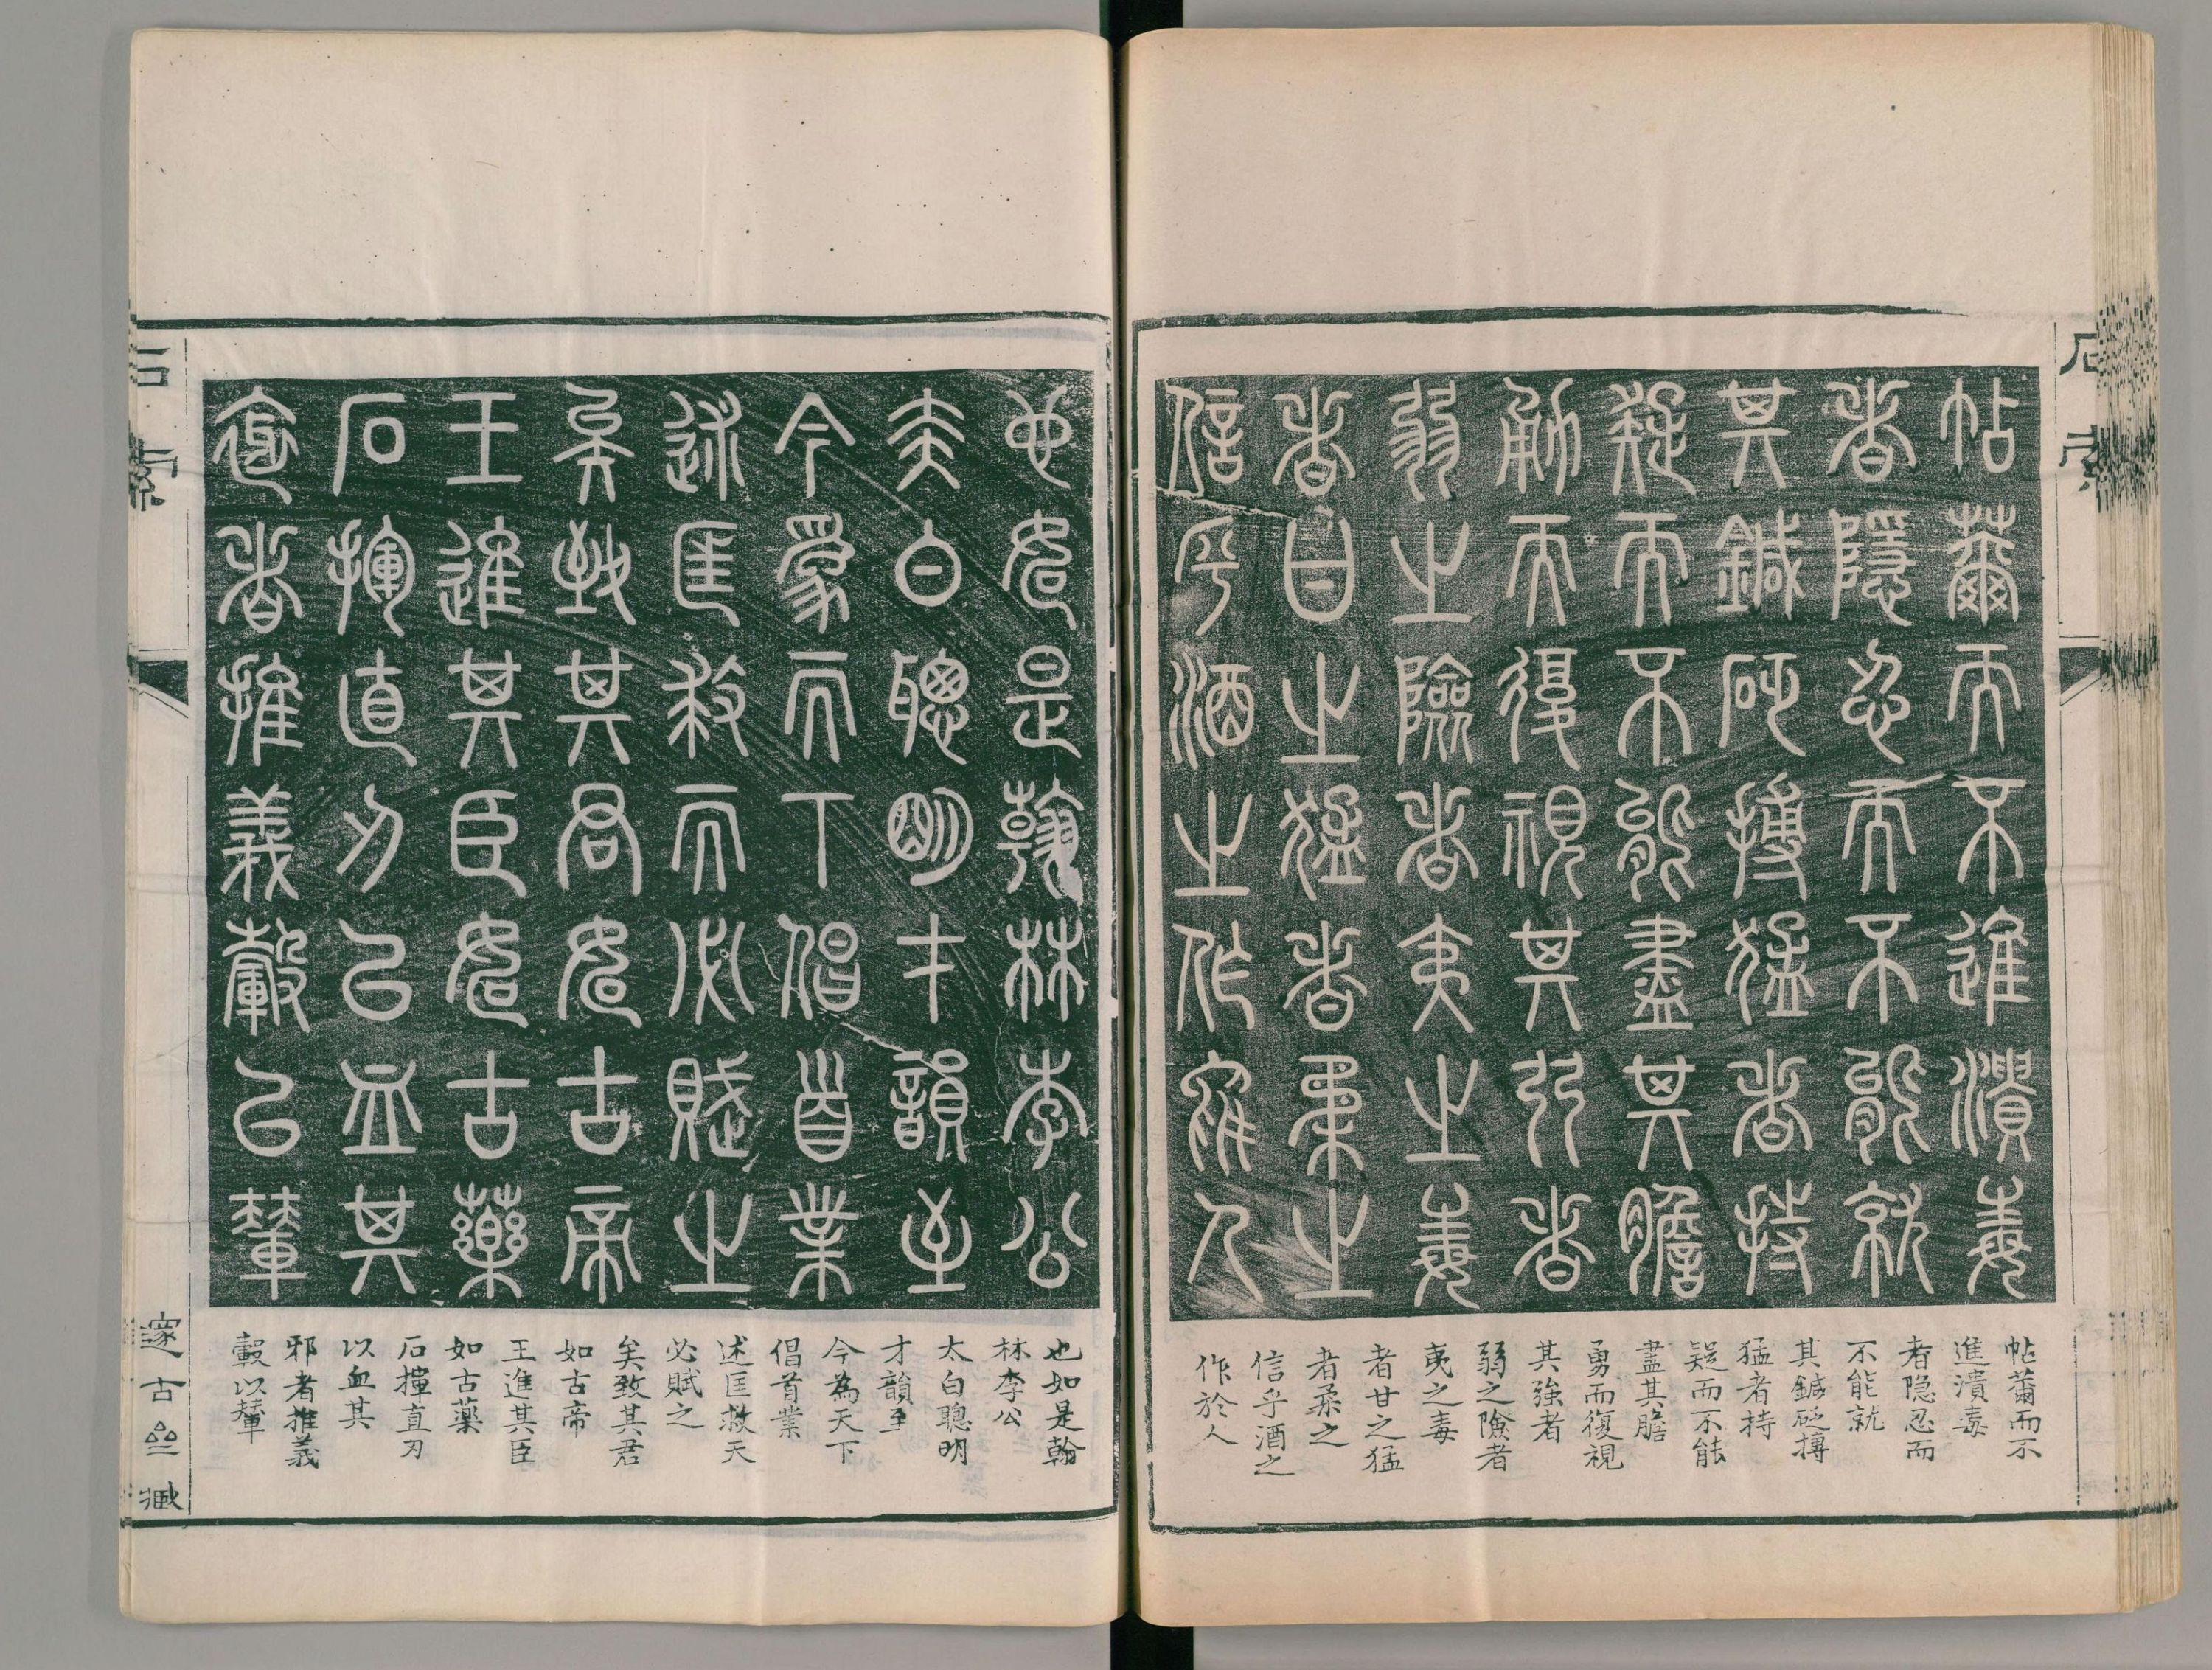 石索
帖薾而不進潰毒
者隱忍而不能就
其鍼砭摶猛者持
疑而不能盡其膽
勇而復視其強者
弱之險者夷之毒
者甘之猛者柔之
信乎酒之作於人
帖薾而不
進潰毒
者隐忍而
不能就
其鍼砭摶
猛者持
疑而不能
盡其膽
勇而復視
其強者
弱之險者
夷之毒
者甘之猛
者柔之
信乎酒之
作於人
也如是翰林李公
太白聰明才韻至
今為天下倡首業
述匡救天必賦之
矣致其君如古帝
王進其臣如古藥
石揮直刃以血其
邪者推義轂以輦
也如是翰
林李公
太白聰明
才韻至
今為天下
倡首業
述匡救天
必賦之
矣致其君
如古帝
王進其臣
如古藥
石撞直刃
以血其
邪者推義
轂以輦
石索
邃古亝臧